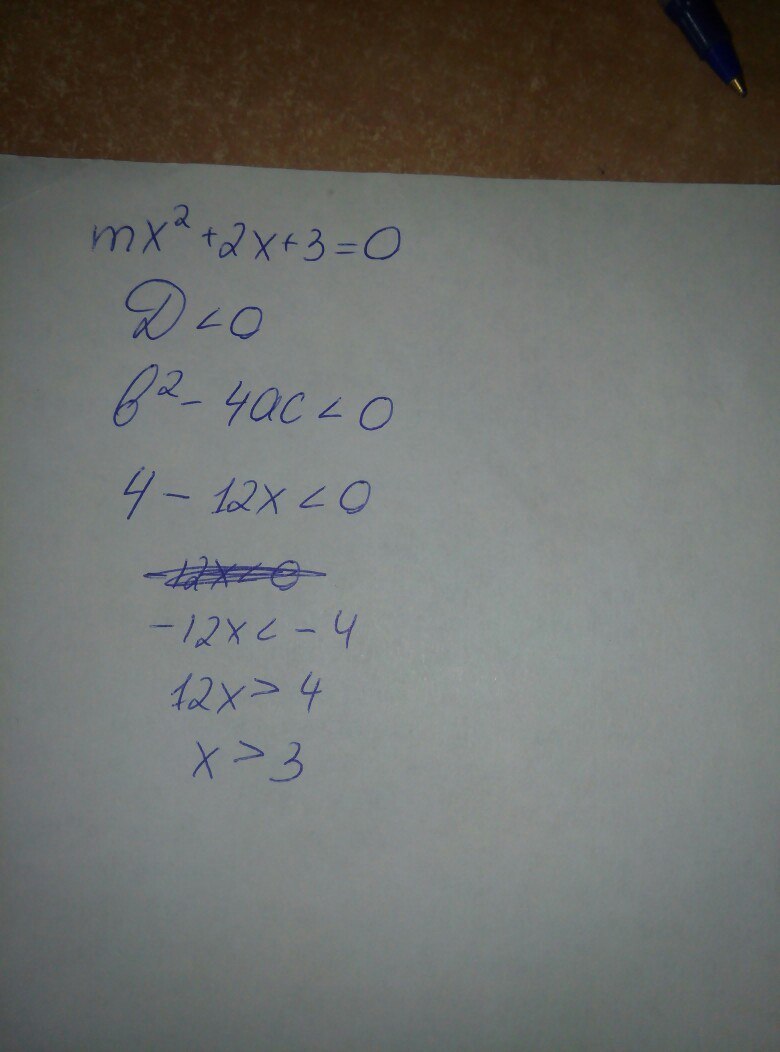 mx²+2x+3=0
D<0
b²-4ac<0
4-12x<0
-12x<0
-12x<-4
12x>4
x>3